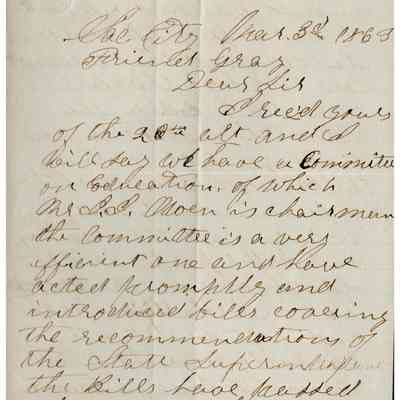 Sac City Mar. 3d 1863
Friend Gray
Dear Sir
I rec'd yours
of the 20th ult and I
will say we have a Committee
on Education, of which
Mr is chairman
the Committee is a very
efficient one and have
acted promptly and
introduced bills covering
the recommendations of
the State Superintendent
the Bills have passed